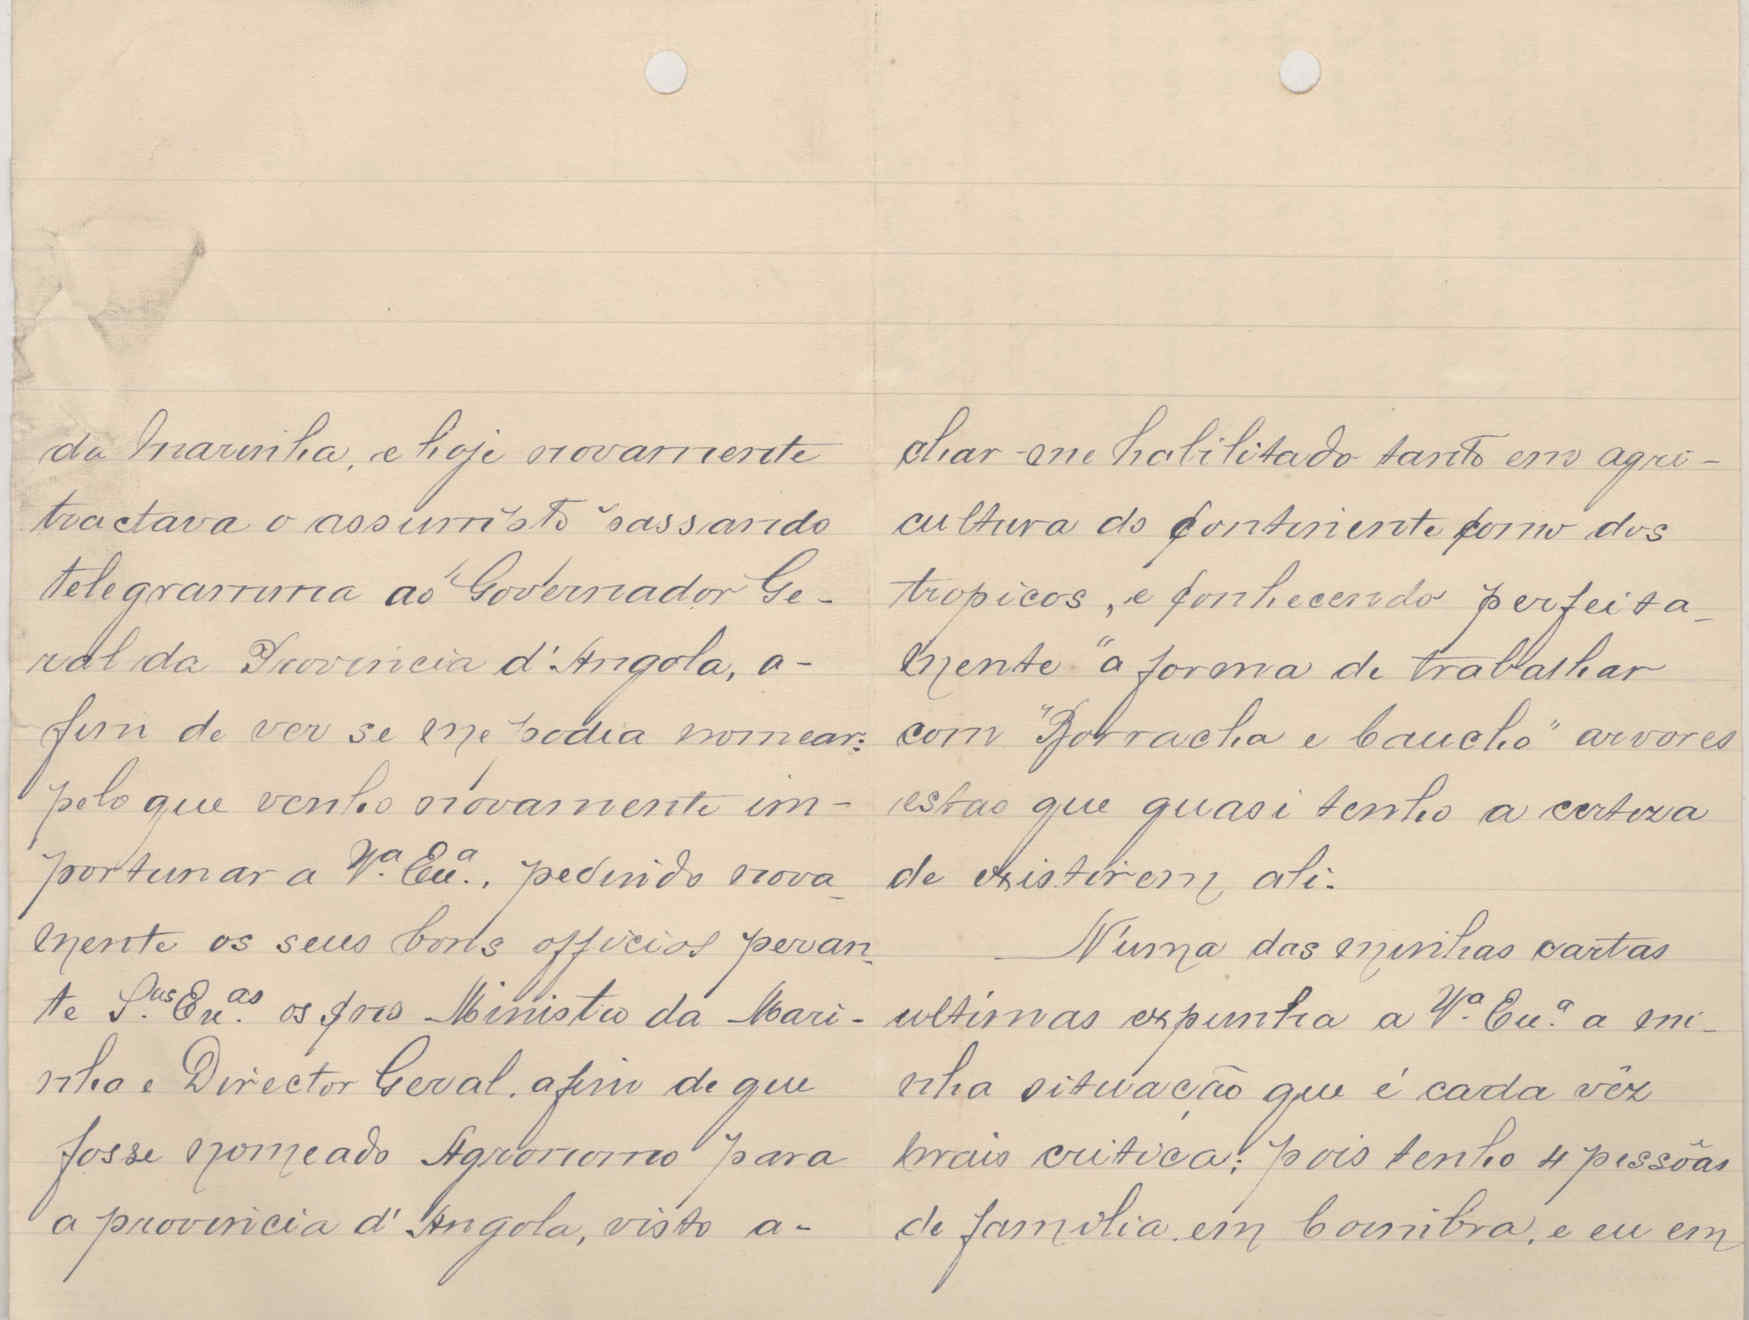 da Marinha, e hoje novamente
tractava o assumpto passando
telegramma ao Governador Ge-
ral da Provincia d'Angola, a-
fim de ver se me podia nomear;
pelo que venho novamente im-
portunar a V.ª Ex.ª, pedindo nova-
mente os seus bons officios peran-
te S.as Ex.as os Ministro da Mari-
nha e Director Geral, afim de que
fosse nomeado Agronomo para
a provincia d'Angola, visto a-
char-me habilitado tanto em agri-
cultura do Continente como dos
tropicos, e conhecendo perfeita-
mente a forma de trabalhar
com "Borracha e Caucho" arvores
estas que quasi tenho a certeza
de existirem ali.
N'uma das minhas cartas
ultimas expunha a V.ª Ex.ª a mi-
nha situação que é cada vêz
mais critica; pois tenho 4 pessôas
de familia em Coimbra, e eu em